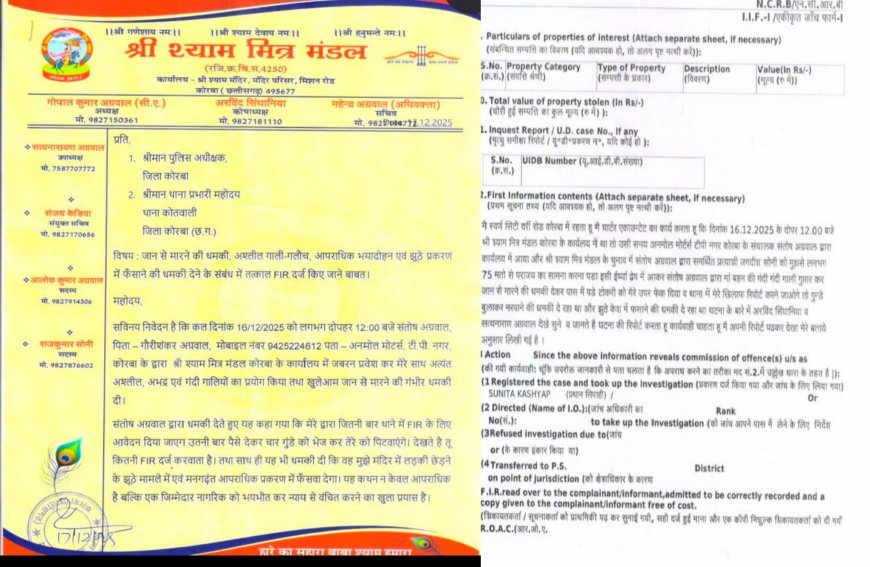 ।।श्री गणेशाय नमः।। ।।श्री श्याम देवाय नमः।। ।।श्री हनुमन्ते नमः।।
श्री श्याम मित्र मंडल
(रजि.क्र.बि.स.4250)
कार्यालय – श्री श्याम मंदिर, मंदिर परिसर, मिशन रोड
कोरबा ( छत्तीसगढ़) 495677
गोपाल कुमार अग्रवाल (सी.ए.) अरविंद सिंघानिया महेन्द्र अग्रवाल (अधिवक्ता)
अध्यक्ष कोषाध्यक्ष सचिव
मो. 9827150361 मो. 9827181110 मो. 12.2025
❖ सत्यनारायण अग्रवाल
उपाध्यक्ष
मो. 7587707772
❖ संजय केडिया
संयुक्त सचिव
मो. 9827170656
❖ आलोक कुमार अग्रवाल
सदस्य
मो. 9827914306
❖ राजकुमार सोनी
सदस्य
मो. 9827876602
प्रति,
1. श्रीमान पुलिस अधीक्षक,
जिला कोरबा
2. श्रीमान थाना प्रभारी महोदय
थाना कोतवाली
जिला कोरबा (छ.ग.)
विषय : जान से मारने की धमकी, अश्लील गाली-गलौच, आपराधिक भयादोहन एवं झूठे प्रकरण
में फँसाने की धमकी देने के संबंध में तत्काल FIR दर्ज किए जाने बाबत।
महोदय,
सविनय निवेदन है कि कल दिनांक 16/12/2025 को लगभग दोपहर 12:00 बजे संतोष अग्रवाल,
पिता – गौरीशंकर अग्रवाल, मोबाइल नंबर 9425224612 पता – अनमोल मोटर्स, टी.पी. नगर,
कोरबा के द्वारा श्री श्याम मित्र मंडल कोरबा के कार्यालय में जबरन प्रवेश कर मेरे साथ अत्यंत
अश्लील, अभद्र एवं गंदी गालियों का प्रयोग किया तथा खुलेआम जान से मारने की गंभीर धमकी
दी।
संतोष अग्रवाल द्वारा धमकी देते हुए यह कहा गया कि मेरे द्वारा जितनी बार थाने में FIR के लिए
आवेदन दिया जाएगा उतनी बार पैसे देकर चार गुंडे को भेज कर तेरे को पिटवाएंगे। देखते है तू
कितनी FIR दर्ज करवाता है। तथा साथ ही यह भी धमकी दी कि वह मुझे मंदिर में लड़की छेड़ने
के झूठे मामले में एवं मनगढ़ंत आपराधिक प्रकरण में फँसवा देगा। यह कथन न केवल आपराधिक
है बल्कि एक जिम्मेदार नागरिक को भयभीत कर न्याय से वंचित करने का खुला प्रयास है।
17/12/25
हारे का सहारा बाबा श्याम हमारा
N.C.R.B/एन.सी.आर.बी
I.I.F.-I /एकीकृत जाँच फार्म-I
. Particulars of properties of interest (Attach separate sheet, if necessary)
(संबन्धित सम्पत्ति का विवरण (यदि आवश्यक हो, तो अलग पृष्ट नत्थी करें)):
S.No. Property Category Type of Property Description Value(In Rs/-)
(क्र.सं.) (संपत्ति श्रेणी) (सम्पत्ती के प्रकार) (विवरण) (मूल्य (रु में))
0. Total value of property stolen (In Rs/-)
(चोरी हुई सम्पत्ति का कुल मूल्य (रु में) ):
1. Inquest Report / U.D. case No., if any
(मृत्यु समीक्षा रिपोर्ट / यू॰डी॰प्रकरण न॰, यदि कोई हो ):
S.No. UIDB Number (यू.आई.डी.बी.संख्या)
(क्र.सं.)
2.First Information contents (Attach separate sheet, if necessary)
(प्रथम सूचना तथ्य (यदि आवश्यक हो, तो अलग पृष्ट नत्थी करें)):
मै स्वर्ण सिटी दर्री रोड कोरबा में रहता हू मै चार्टर एकाउन्टेट का कार्य करता हू कि दिनांक 16.12.2025 के दोपर 12.00 बजे
श्री श्याम मित्र मंडल कोरबा के कार्यालय में था तो उसी समय अनमोल मोटर्स टीपी नगर कोरबा के संचालक संतोष अग्रवाल द्वारा
कार्यालय में आया और श्री श्याम मित्र मंडल के चुनाव में संतोष अग्रवाल द्वारा समर्थित प्रत्याशी जगदीश सोनी को मुझसे लगभग
75 मतो से पराजय का सामना करना पडा इसी ईर्ष्या द्वेष में आकर संतोष अग्रवाल द्वारा मां बहन की गंदी गंदी गाली गुप्तार कर
जान से मारने की धमकी देकर पास में पडे टोकरी को मेरे उपर फेक दिया व थाना में मेरे खिलाफ रिपोर्ट करने जाओगे तो गुन्डे
बुलाकर मरवाने की धमकी दे रहा था और झूठे केश में फसाने की धमकी दे रहा था घटना के बारे में अरविंद सिंघानिया व
सत्यनाराण अग्रवाल देखे सुने व जानते है घटना की रिपोर्ट करता हू कार्यवाही चाहता हू मै अपनी रिपोर्ट पढ़कर देखा मेरे बताये
अनुसार लिखी गई है ।
Action Since the above information reveals commission of offence(s) u/s as
(की गयी कार्यवाही: चूंकि उपरोक्त जानकारी से पता चलता है कि अपराध करने का तरीका मद सं.2.में उल्लेख धारा के तहत है |):
(1 Registered the case and took up the investigation (प्रकरण दर्ज किया गया और जांच के लिए लिया गया)
SUNITA KASHYAP (प्रधान सिपाही) / Or
(2 Directed (Name of I.O.):(जांच अधिकारी का Rank
No(सं.): to take up the Investigation (को जांच आपने पास में लेने के लिए निर्देश
(3Refused investigation due to(जांच
or (के कारण इंकार किया या)
(4 Transferred to P.S. District
on point of jurisdiction (को क्षेत्राधिकार के कारण
F.I.R.read over to the complainant/informant,admitted to be correctly recorded and a
copy given to the complainant/informant free of cost.
(शिकायतकर्ता / सूचनाकर्ता को प्राथमिकी पढ़ कर सुनाई गयी, सही दर्ज हुई माना और एक कॉपी निशुल्क शिकायतकर्ता को दी गयी
R.O.A.C.(आर.ओ.ए.